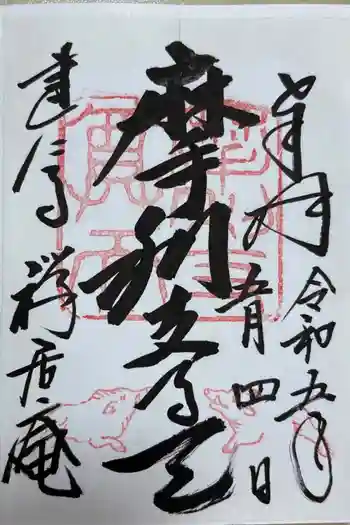 奉拝
令和五年
五月四日
摩利支尊天
建仁寺
禅居庵